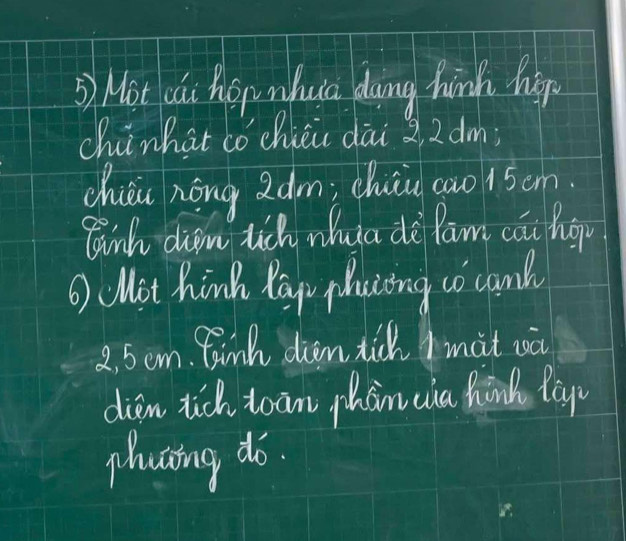 5) Một cái hộp nhựa dạng hình hộp
chữ nhật có chiều dài 2,2dm;
chiều rộng 2dm; chiều cao 15cm.
Tính diện tích nhựa để làm cái hộp.
6) Một hình lập phương có cạnh
2,5cm. Tính diện tích 1 mặt và
diện tích toàn phần của hình lập
phương đó.